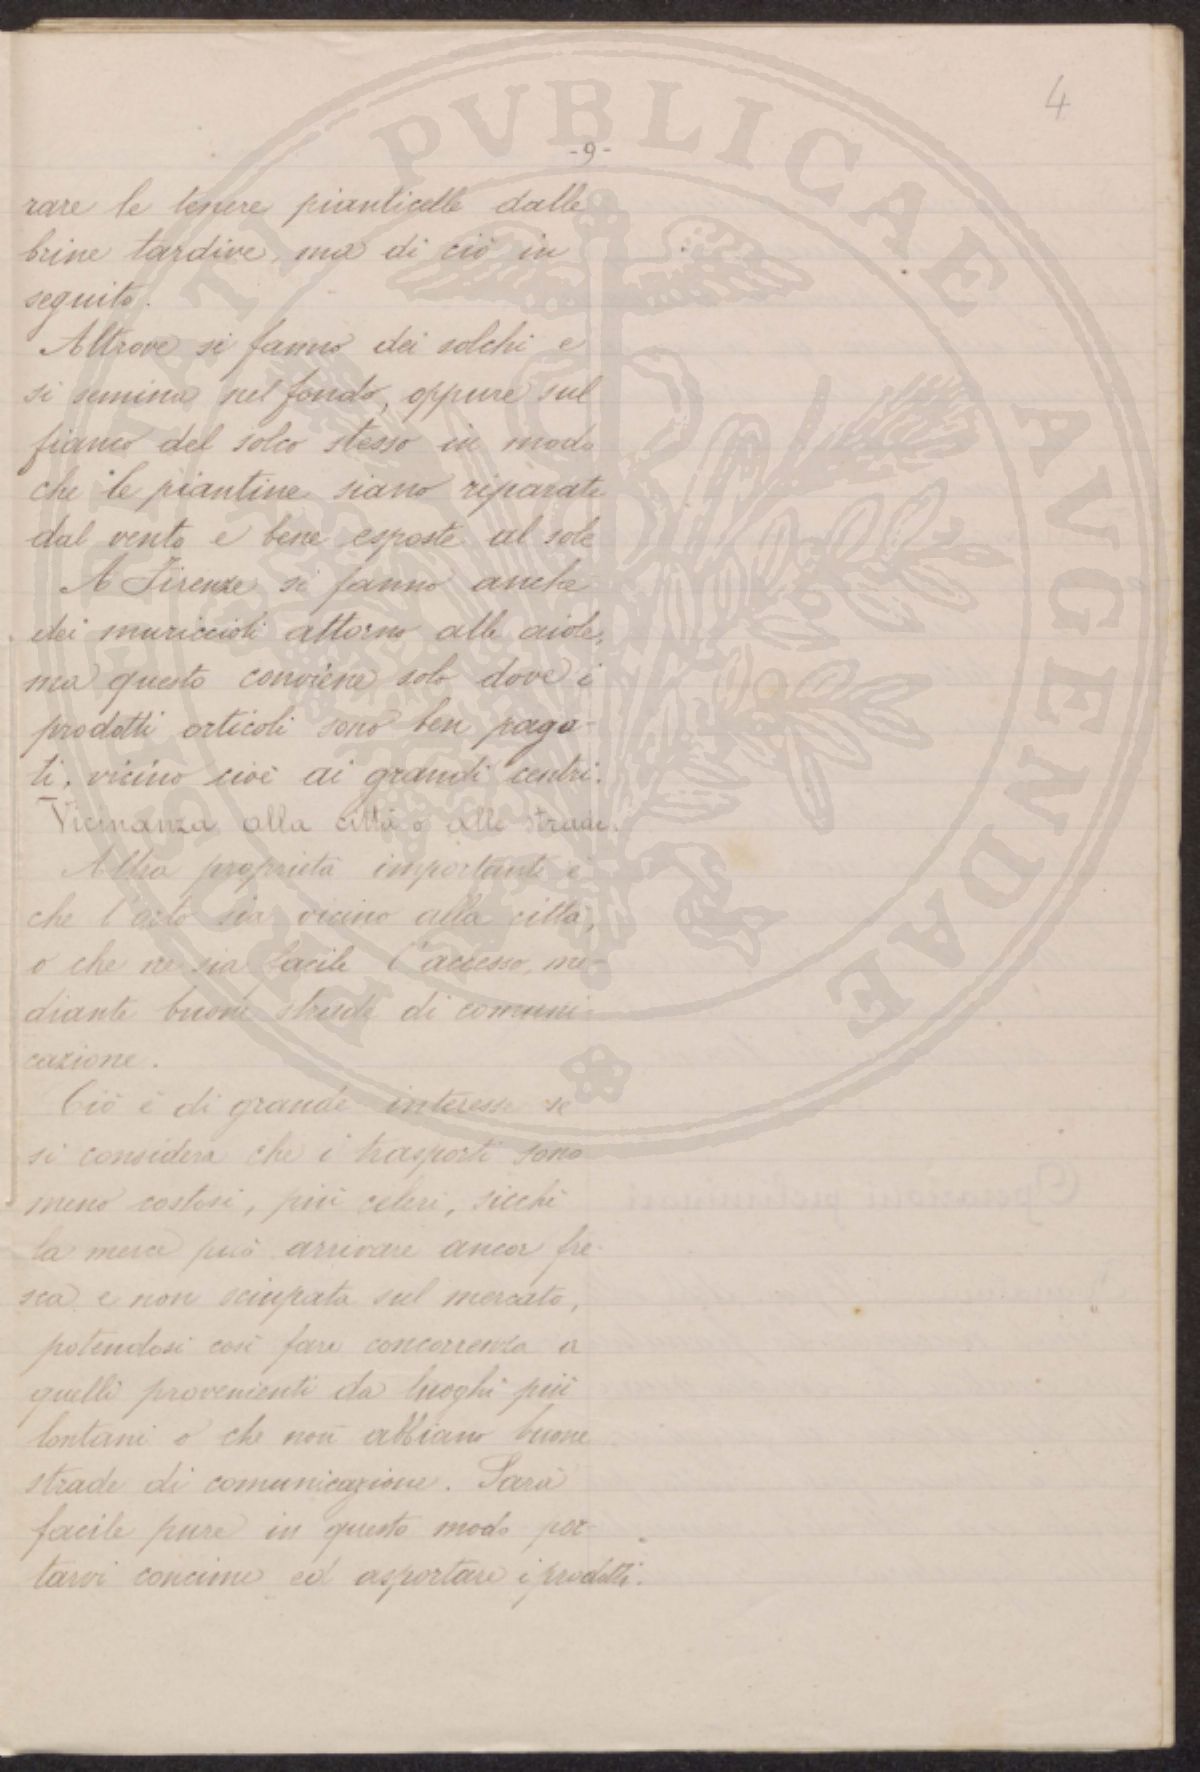 4
-9-
rare le tenere pianticelle dalle
brine tardive, ma di ciò in
seguito.
Altrove si fanno dei solchi e
si semina nel fondo, oppure sul
fianco del solco stesso in modo
che le piantine siano riparate
dal vento e bene esposte al sole
A Firenze si fanno anche
dei muriccioli attorno alle aiole,
ma questo conviene solo dove i
prodotti orticoli sono ben paga-
ti, vicino cioè ai grandi centri.
Vicinanza alla città o alle strade.
Altra proprietà importante è
che l'orto sia vicino alla città,
o che ne sia facile l'accesso, me-
diante buone strade di comuni-
cazione.
Ciò è di grande interesse se
si considera che i trasporti sono
meno costosi, più celeri, sicchè
la merce può arrivare ancor fre-
sca e non sciupata sul mercato,
potendosi così fare concorrenza a
quelli provenienti da luoghi più
lontani o che non abbiano buone
strade di comunicazione. Sarà
facile pure in questo modo por-
tarvi concime ed asportare i prodotti.
PVBLICAE AVGENDAE